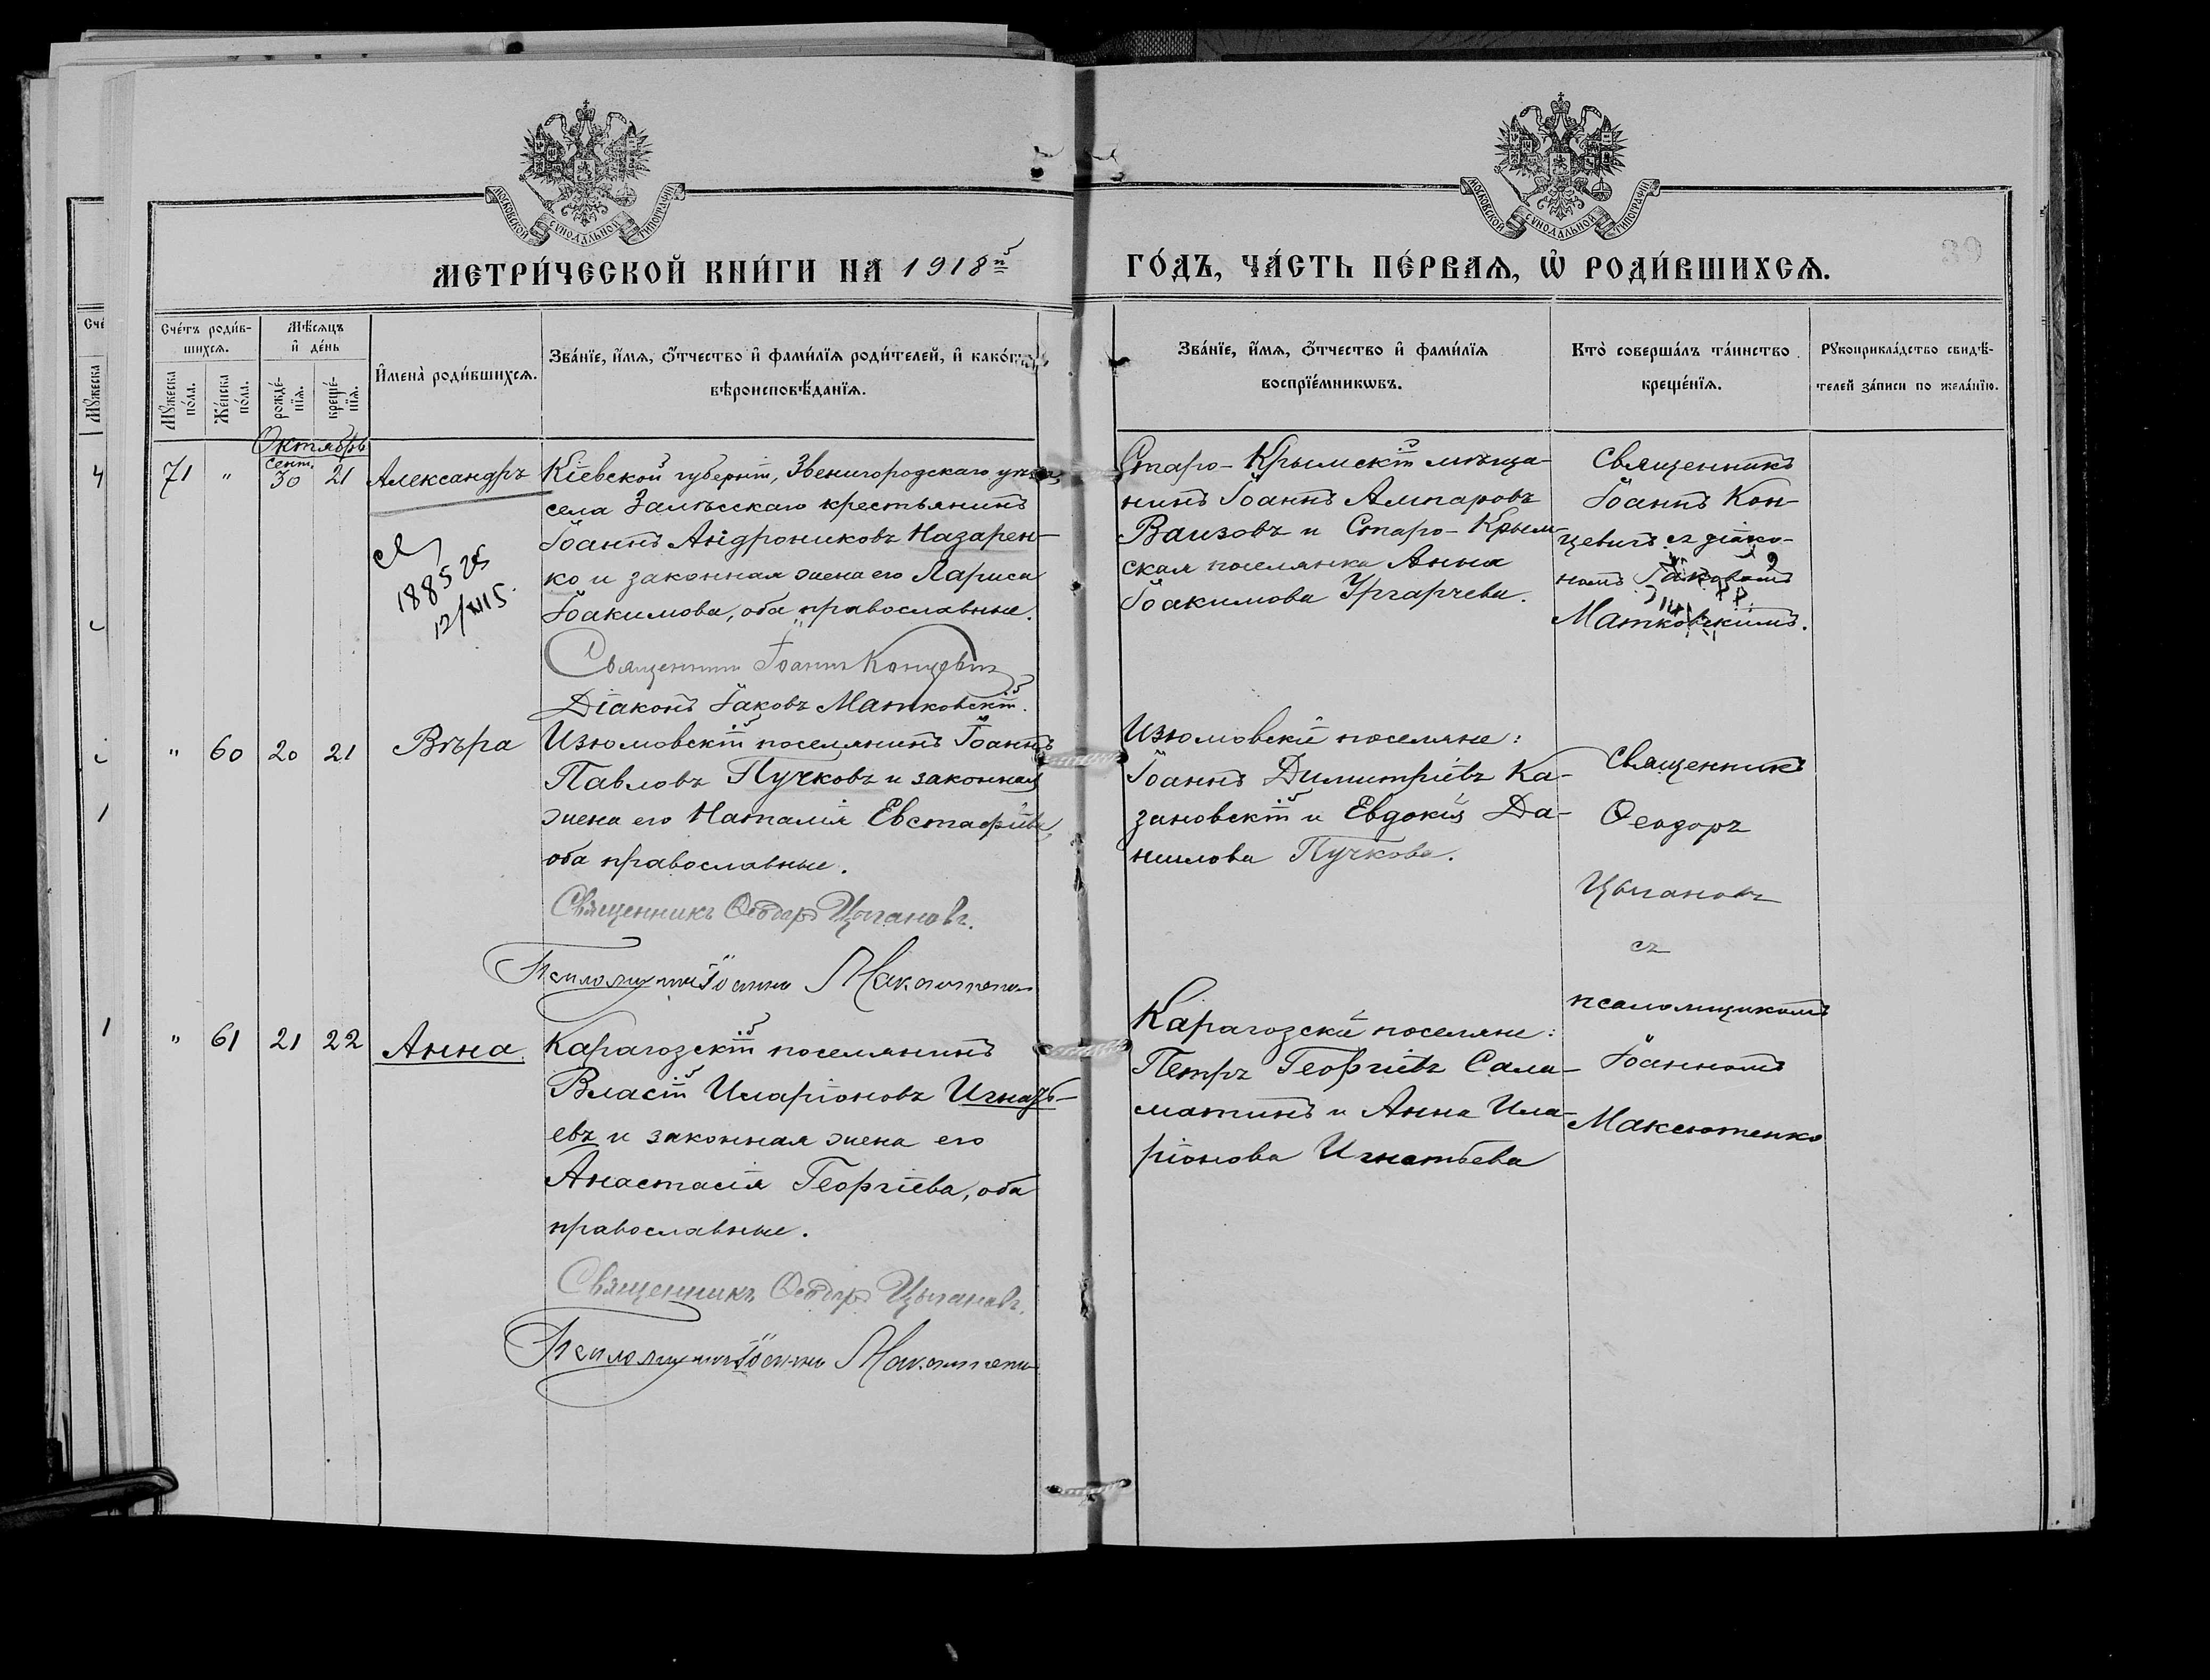 МОСКОВСКОЙ СѴНОДАЛЬНОЙ ТИПОГРАФІИ
МОСКОВСКОЙ СѴНОДАЛЬНОЙ ТИПОГРАФІИ
39
МЕТРИ́ЧЕСКОЙ КНИ́ГИ НА 1918й
ГО́ДЪ, ЧА́СТЬ ПЕ́РВАѦ, Ѡ РОДИ́ВШИХСѦ.
Сче́тъ роди́в-
шихсѧ.
Мꙋжеска
по́ла.
Же́нска
по́ла.
Мѣ́сѧцъ
и҆ де́нь
рожде́-
нїѧ.
креще́-
нїѧ.
И҆мена̀ роди́вшихсѧ.
Зва́нїе, и҆́мѧ, ѻ҆́тчество и҆ фами́лїѧ роди́телей, и҆ како́гѡ
вѣроисповѣ́данїѧ.
Зва́нїе, и҆́мѧ, ѻ҆́тчество и҆ фами́лїѧ
воспрїе́мникѡвъ.
Кто̀ соверша́лъ та́инство
креще́нїѧ.
Рꙋкоприкла́дство свидѣ́-
телей за́писи по жела́нїю.
Октябрь
71 " сент. 30 21 Александръ
Кіевской губерніи, Звенигородскаго уѣзда
села Залѣсскаго крестьянинъ
Іоаннъ Андрониковъ Назарен-
ко и законная жена его Лариса
Іоакимова, оба православные.
Священникъ Іоаннъ Концевичъ
Діаконъ Іаковъ Матковскій.
1885
12/XII 5.
Старо-Крымскій мѣща-
нинъ Іоаннъ Ампаровъ
Ваизовъ и Старо-Крым-
ская поселянка Анна
Іоакимова Ургарчева.
Священникъ
Іоаннъ Кон-
цевичъ съ діако-
номъ Іаковомъ
Матковскимъ.
" 60 20 21 Вѣра
Изюмовскій поселянинъ Іоаннъ
Павловъ Пучковъ и законная
жена его Наталія Евстафіева,
оба православные.
Священникъ Ѳеодоръ Цыгановъ.
Псаломщикъ Іоаннъ Максютенко
Изюмовскіе поселяне:
Іоаннъ Димитріевъ Ка-
зановскій и Евдокія Да-
нилова Пучкова.
Священникъ
Ѳеодоръ
Цыгановъ
съ
псаломщикомъ
Іоанномъ
Максютенко
" 61 21 22 Анна
Карагозскій поселянинъ
Власій Иларіоновъ Игнать-
евъ и законная жена его
Анастасія Георгіева, оба
православные.
Священникъ Ѳеодоръ Цыгановъ.
Псаломщикъ Іоаннъ Максютенко
Карагозскіе поселяне:
Петръ Георгіевъ Сала-
матинъ и Анна Ила-
ріонова Игнатьева